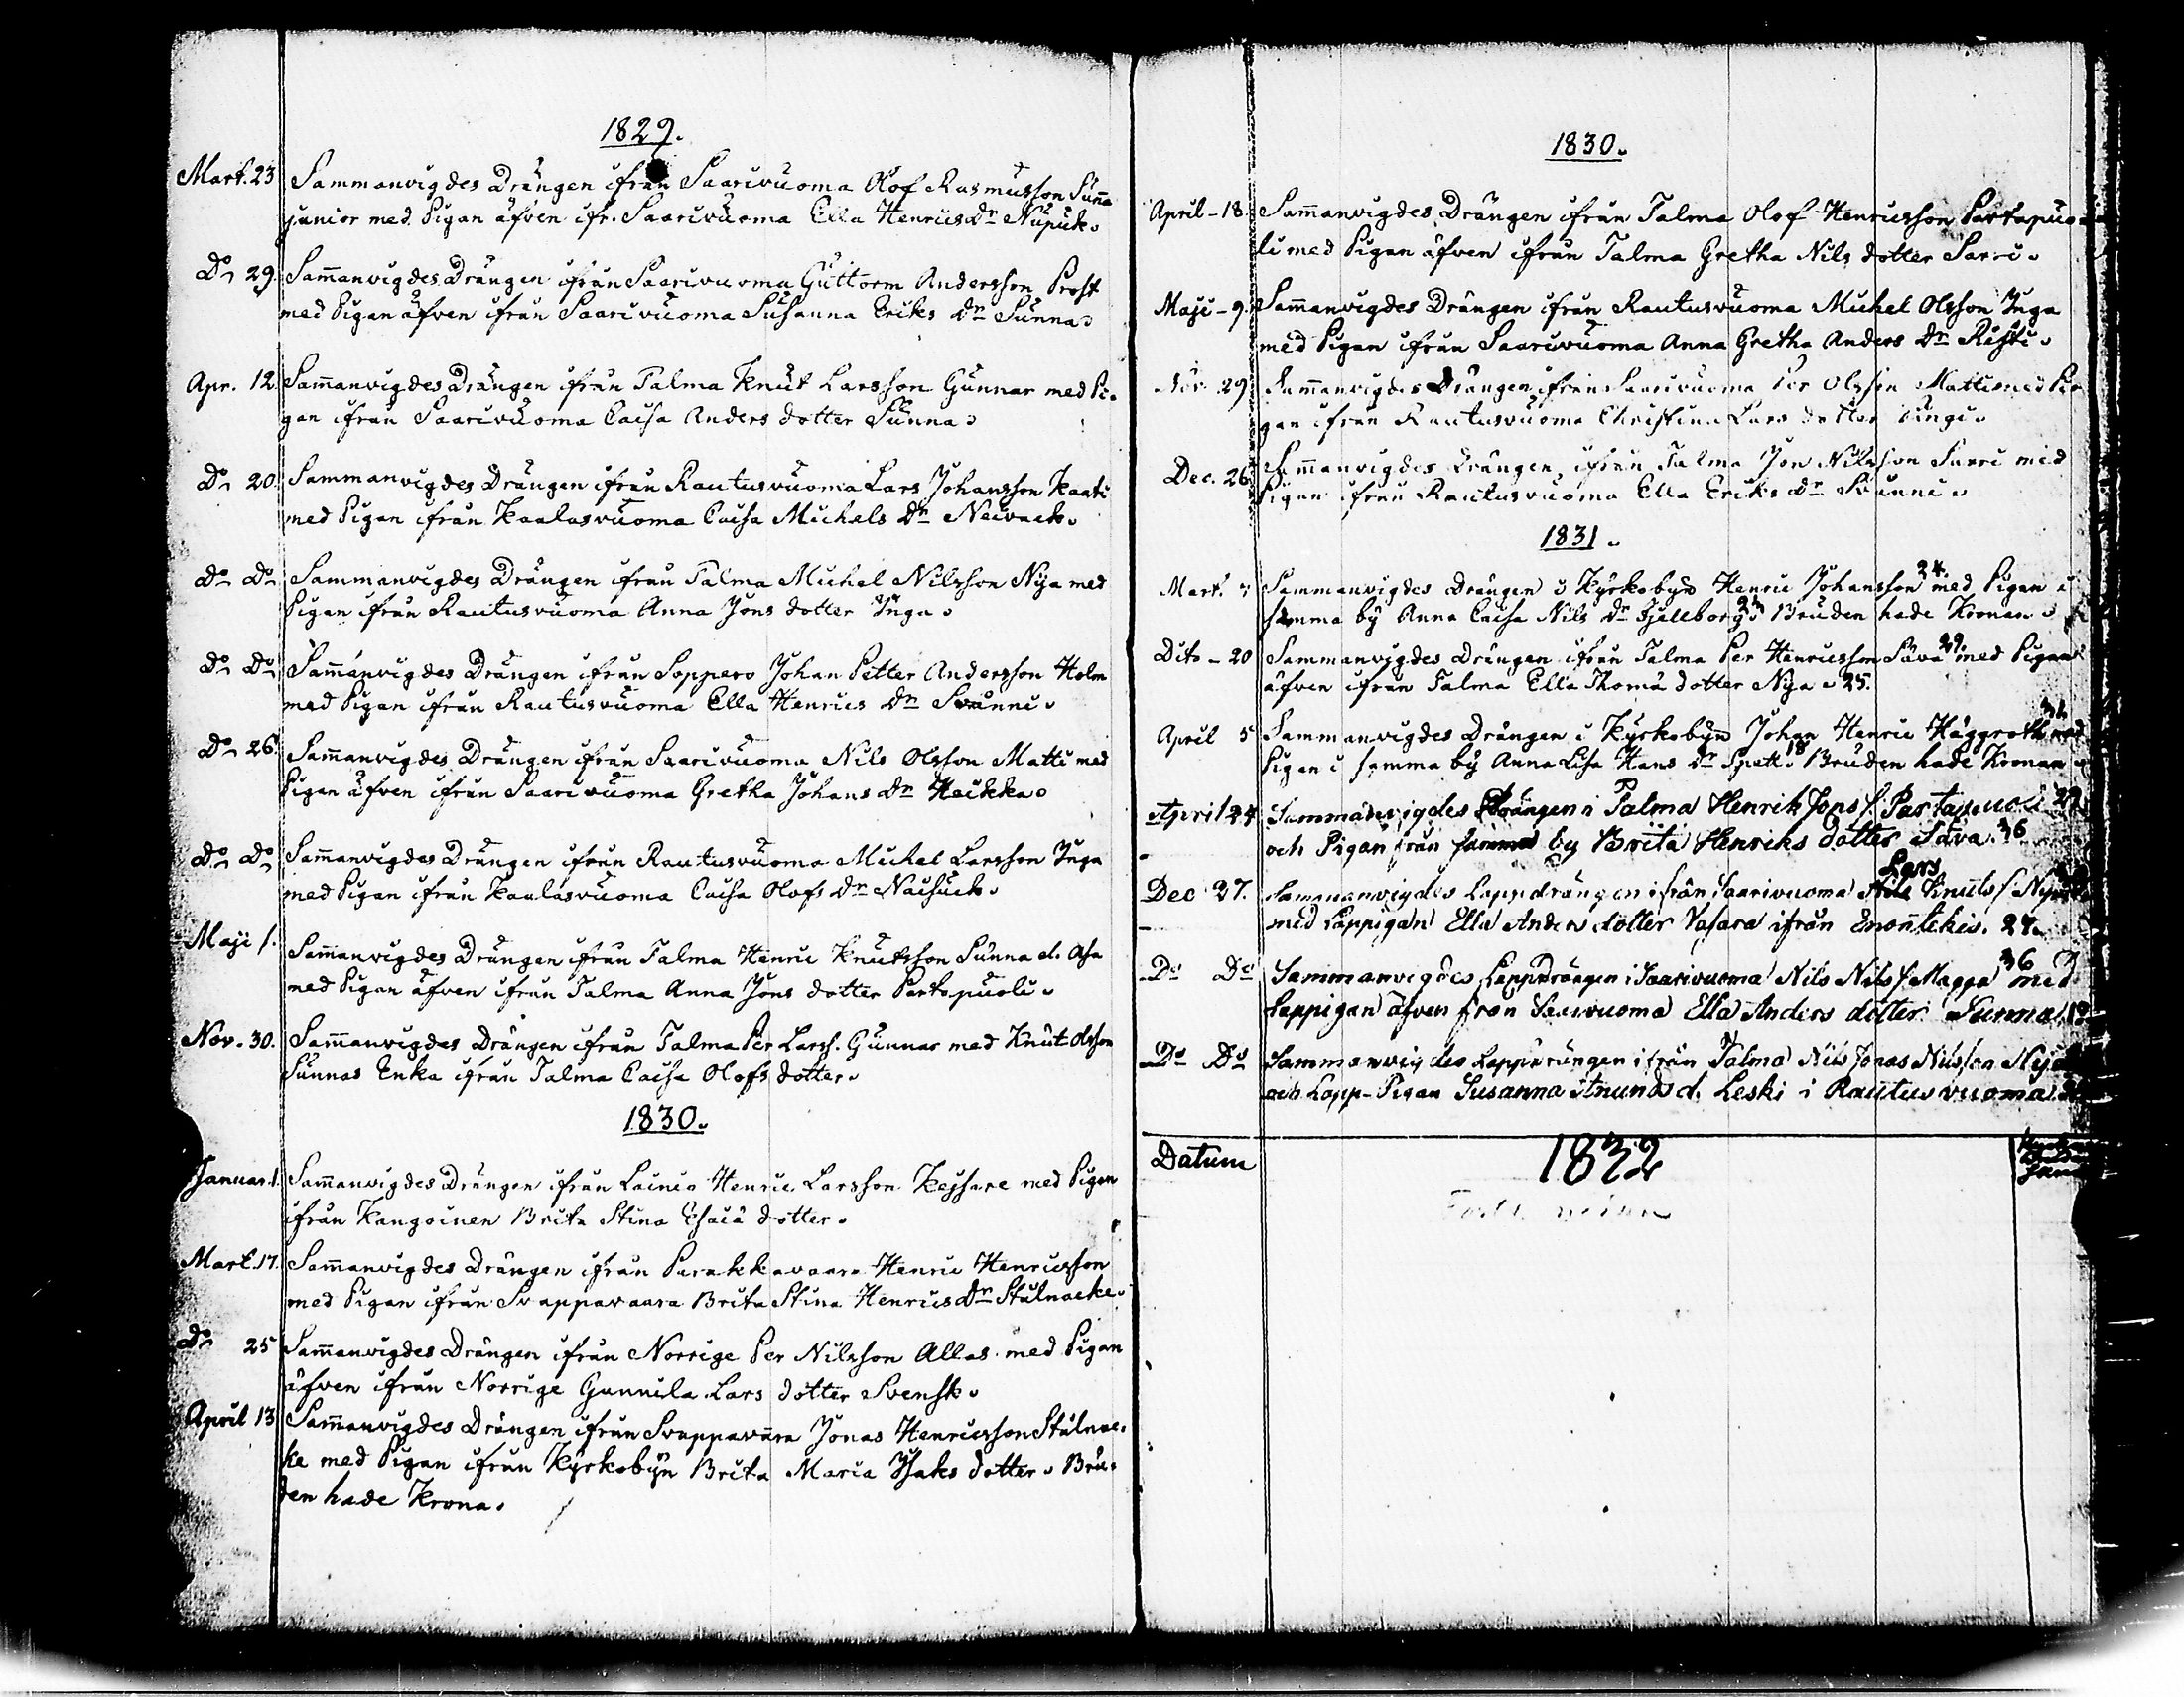 1829.
Mart. 23 Sammanvigdes Drängen ifrån Saarivuoma Olof Rasmusson Sunna
junior med Pigan äfven ifr. Saarivuoma Ella Henrics Dr Nuputk.
Do 29. Sam̄anvigdes Drängen ifrån Saarivuoma Guttorm Andersson Prost
med Pigan äfven ifrån Saarivuoma Susanna Eriks Dr Sunna.
Apr. 12. Sam̄anvigdes Drängen ifrån Talma Knut Larsson Gunnar med Pi-
gan ifrån Saarivuoma Caisa Anders dotter Sunna.
Do 20. Sammanvigdes Drängen ifrån Rautusvuoma Lars Johansson Kaati
med Pigan ifrån Kaalasvuoma Caisa Michels Dr Neivack.
Do Do Sammanvigdes Drängen ifrån Talma Michel Nilsson Nija med
Pigan ifrån Rautusvuoma Anna Jons dotter Inga.
Do Do Sammanvigdes Drängen ifrån Soppero Johan Petter Andersson Holm
med Pigan ifrån Rautusvuoma Ella Henrics Dr Svunni.
Do 26. Sam̄anvigdes Drängen ifrån Saarivuoma Nils Olsson Matti med
Pigan äfven ifrån Saarivuoma Gretha Johans Dr Heikka.
Do Do Sam̄anvigdes Drängen ifrån Rautusvuoma Michel Larsson Inga
med Pigan ifrån Kaalasvuoma Caisa Olofs Dr Naisuck.
Maji 1. Sam̄anvigdes Drängen ifrån Talma Henric Knutsson Sunna
med Pigan äfven ifrån Talma Anna Jons dotter Partapuoli.
Nov. 30. Sam̄anvigdes Drängen ifrån Talma Per Larss. Gunnar med Knut Olsson
Sunnas Enka ifrån Talma Caisa Olofs dotter.
1830.
Januar. 1. Sam̄anvigdes Drängen ifrån Lainio Henric Larsson Kejsare med Pigan
ifrån Kangoinen Brita Stina Esaiä dotter.
Mart. 17. Sam̄anvigdes Drängen ifrån Parakkavaara Henric Henricsson
med Pigan ifrån Svappavaara Brita Stina Henrics Dr Stålnacke.
Do 25 Sam̄anvigdes Drängen ifrån Norrige Per Nilsson Allas med Pigan
äfven ifrån Norrige Gunnila Lars dotter Svensk.
April 13 Sam̄anvigdes Drängen ifrån Svappavara Jonas Henricsson Stålnac-
ke med Pigan ifrån Kyrkobyn Brita Maria Isaks dotter. Bru-
den hade Krona.
1830.
April - 18. Sam̄anvigdes Drängen ifrån Talma Olof Henricsson Partapuo-
li med Pigan äfven ifrån Talma Gretha Nils dotter Sarri.
Maji - 9. Sam̄anvigdes Drängen ifrån Rautusvuoma Michel Olsson Inga
med Pigan ifrån Saarivuoma Anna Gretha Anders Dr Risti.
Nov. 29 Sammanvigdes Drängen ifrån Saarivuoma Per Olsson Matti med Pi-
gan ifrån Rautusvuoma Christina Lars dotter
Dec. 26 Sammanvigdes Drängen ifrån Talma Jon Nilsson Sarri med
Pigan ifrån Rautusvuoma Ella Eriks Dr Svunni.
1831.
Mart. 7 Sammanvigdes Drängen i Kyrkobyn Henric Johansson 24. med Pigan i
samma by Anna Caisa Nils Dr Fjellborg. Bruden hade Kronan.
Dito - 20 Sammanvigdes Drängen ifrån Talma Per Henricsson Sava 29. med Pigan
äfven ifrån Talma Ella Thomä dotter Nija. 25.
April 5 Sammanvigdes Drängen i Kyrkobyn Johan Henric Häggroth med
Pigan i samma by Anna Lisa Hans Dr Spett. 18 Bruden hade Kronan.
April 24 Sammanvigdes Drängen i Talma Henrik Jons s. Partapuoli 29
och Pigan från samma by Brita Henriks dotter Sava. 36
Lars
Dec 27. Sammanvigdes Lappdrängen ifrån Saarivuoma Nils Knuts s.
med Lappigan Ella Anders dotter Vasara ifrån Enontekis. 27.
Do Do Sammanvigdes Lappdrängen i Saarivuoma Nils Nils s. Magga 36 med
Lappigan äfven från Saarivuoma Ella Anders dotter Sunna.
Do Do Sammanvigdes Lappdrängen ifrån Talma Nils Jonas Nilsson Nija
och Lapp-Pigan Susanna Amunds d. Leski i Rautusvuoma.
Datum 1832